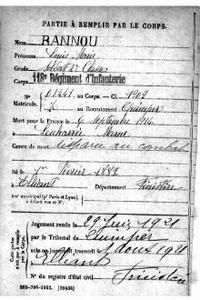 PARTIE À REMPLIR PAR LE CORPS.
Nom RANNOU
Prénoms Louis Marie
Grade Soldat 2e Classe
Corps 118e Régiment d'Infanterie
N° 01441 au Corps. — Cl. 1902
Matricule. au Recrutement Quimper
Mort pour la France le 6 Septembre 1914
à Lenharrée Marne
Genre de mort disparu au combat
Né le Février 1882
à Elliant Département Finistère
Arr. municipal (pr Paris et Lyon),
à défaut rue et N°.
Jugement rendu le 29 Juin 1921
par le Tribunal de Quimper
acte ou jugement transcrit le 1 Août 1921
à Elliant Finistère
N° du registre d'état civil